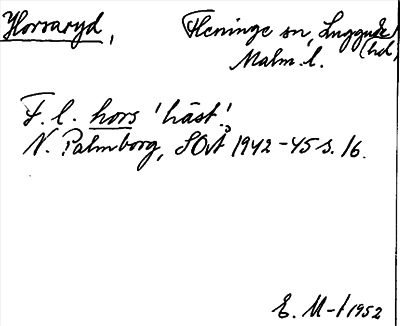 Horsaryd, Fleninge sn, Luggude
Malm. l. (hd)
F. l. hors 'häst'.
N. Palmborg, SOÅ 1942-45 s. 16.
E. M-l 1952